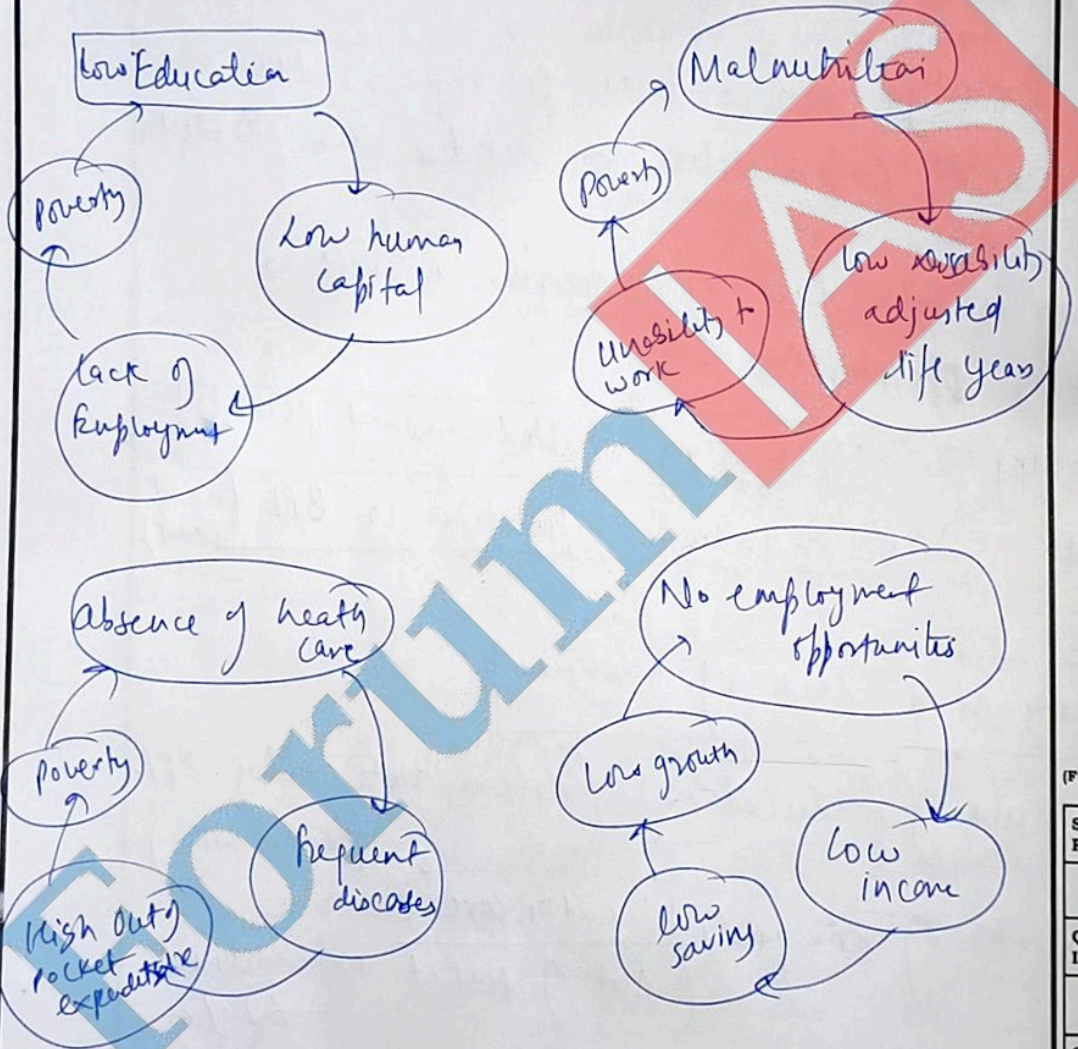 Low Education
Poverty
Low human
capital
Lack of
Employment
Malnutrition
Poverty
Low disability
adjusted
life years
Unability to
work
Absence of heath
care
Poverty
frequent
diseases
High Out of
pocket
expenditure
No employment
opportunities
Low growth
Low
income
low
saving
Forum IAS
(F
S